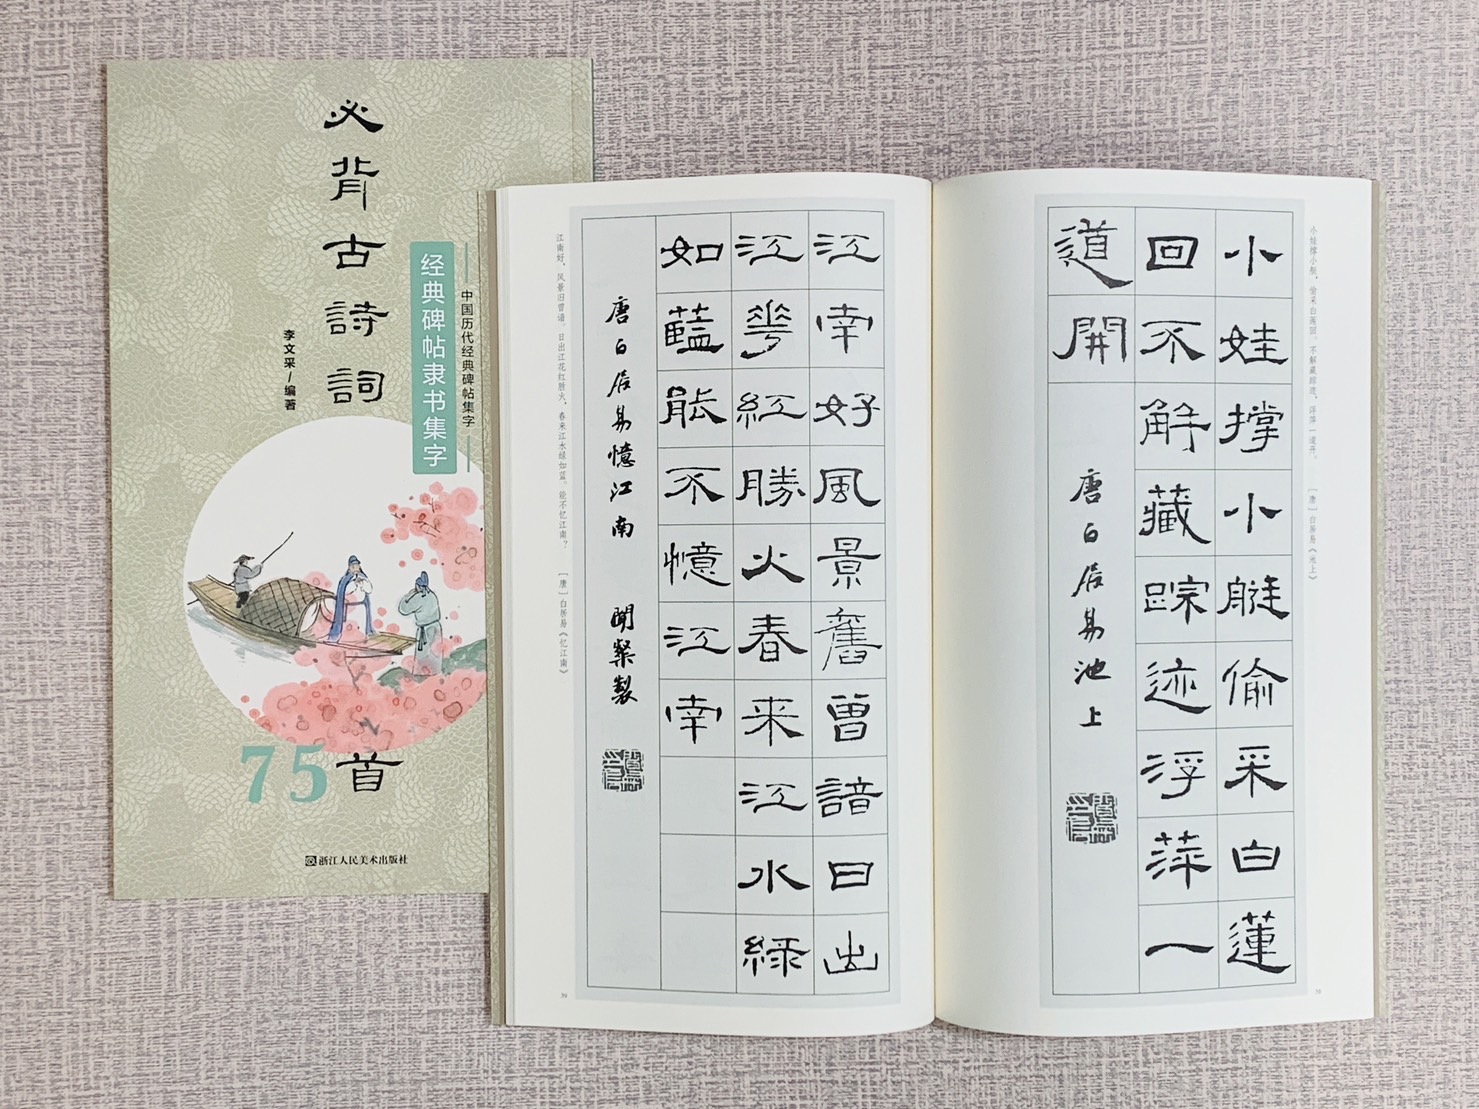 必背古詩詞
75首
李文采/编著
经典碑帖隶书集字
中国历代经典碑帖集字
浙江人民美术出版社
小娃撑小艇，偷采白莲回。不解藏踪迹，浮萍一道开。
［唐］白居易《池上》
小娃撑小艇偷采白蓮
回不解藏踪迹浮萍一
道開
唐白居易池上
38
江南好風景舊曾諳日出
江花紅勝火春来江水緑
如藍能不憶江南
唐白居易憶江南
製
江南好，风景旧曾谙。日出江花红胜火，春来江水绿如蓝。能不忆江南？
［唐］白居易《忆江南》
39